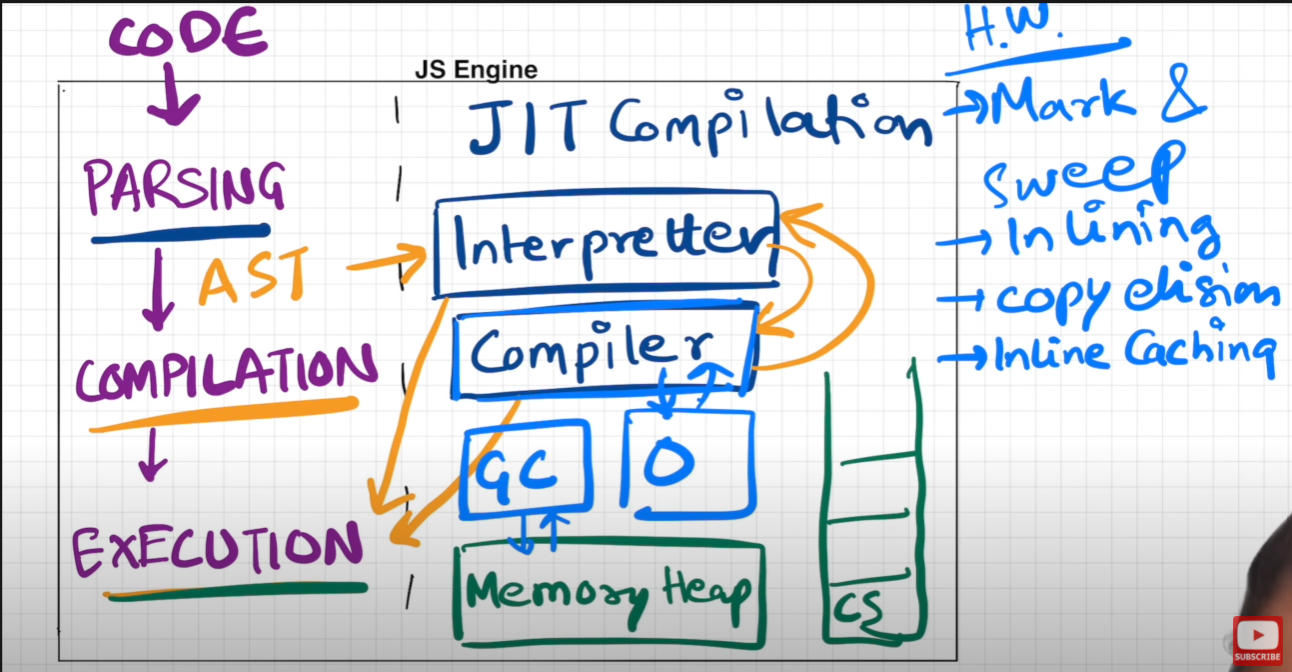 CODE
JS Engine
PARSING
AST
COMPILATION
EXECUTION
JIT Compilation
Interpretter
Compiler
GC
O
Memory Heap
CS
H.W.
→ Mark &
Sweep
→ Inlining
→ copy elision
→ Inline Caching
SUBSCRIBE